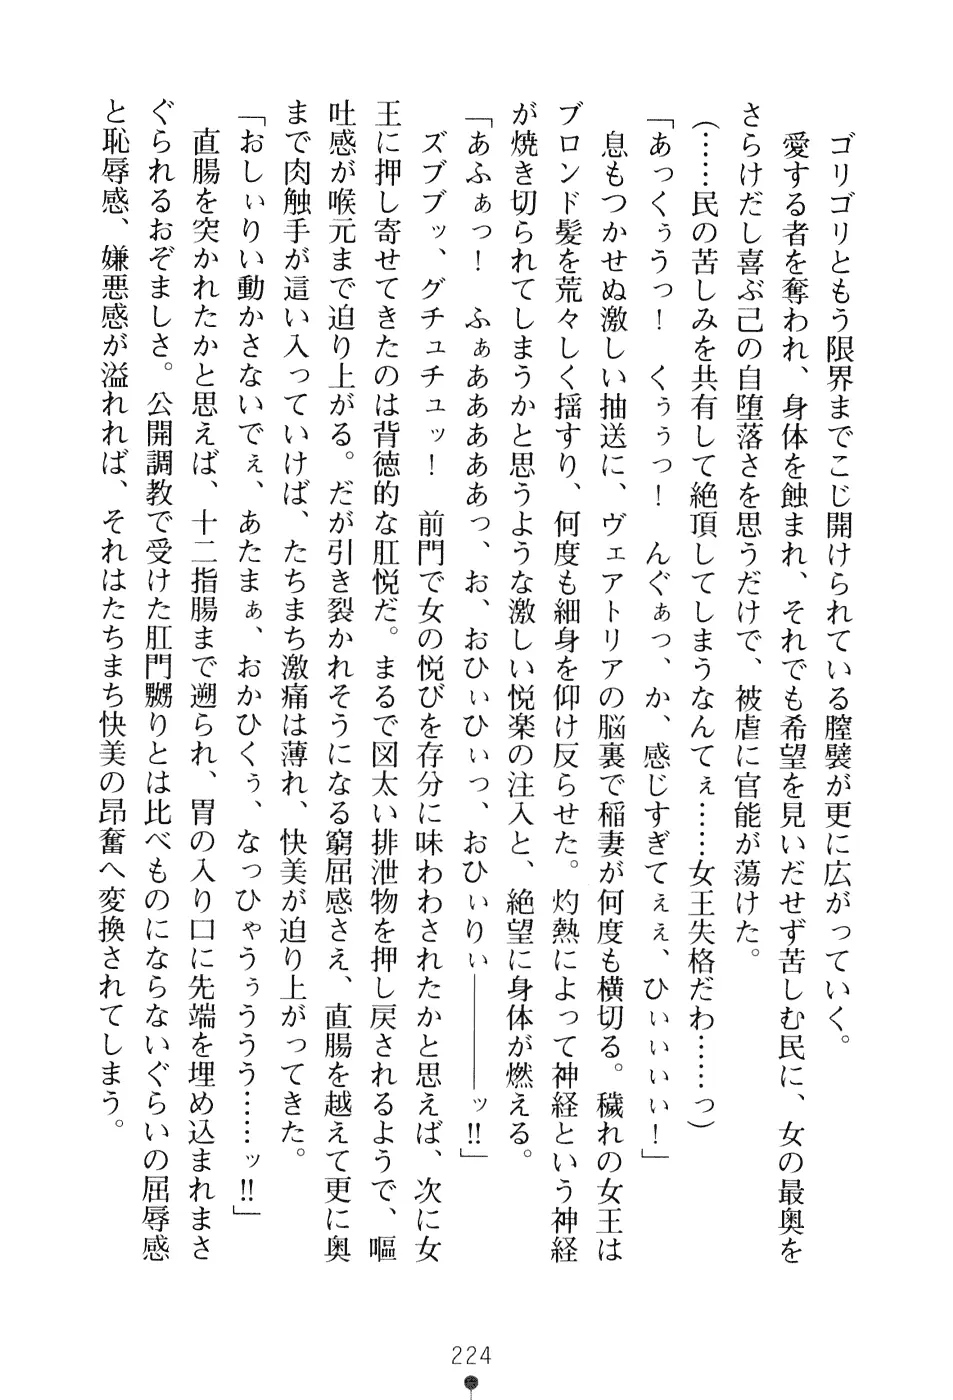 ゴリゴリともう限界までこじ開けられている膣襞が更に広がっていく。
愛する者を奪われ、身体を蝕まれ、それでも希望を見いだせず苦しむ民に、女の最奥を
さらけだし喜ぶ己の自堕落さを思うだけで、被虐に官能が蕩けた。
(……民の苦しみを共有して絶頂してしまうなんてぇ……女王失格だわ……っ)
「あっくぅうっ！　くぅぅっ！　んぐぁっ、か、感じすぎてぇぇ、ひぃぃぃぃ！」
息もつかせぬ激しい抽送に、ヴェアトリアの脳裏で稲妻が何度も横切る。穢れの女王は
ブロンド髪を荒々しく揺すり、何度も細身を仰け反らせた。灼熱によって神経という神経
が焼き切られてしまうかと思うような激しい悦楽の注入と、絶望に身体が燃える。
「あふぁっ！　ふぁああああっ、お、おひぃひぃっ、おひぃりぃ――――ッ‼」
ズブブッ、グチュチュッ！　前門で女の悦びを存分に味わわされたかと思えば、次に女
王に押し寄せてきたのは背徳的な肛悦だ。まるで図太い排泄物を押し戻されるようで、嘔
吐感が喉元まで迫り上がる。だが引き裂かれそうになる窮屈感さえ、直腸を越えて更に奥
まで肉触手が這い入っていけば、たちまち激痛は薄れ、快美が迫り上がってきた。
「おしぃりい動かさないでぇ、あたまぁ、おかひくぅ、なっひゃうぅううう……ッ‼」
直腸を突かれたかと思えば、十二指腸まで遡られ、胃の入り口に先端を埋め込まれまさ
ぐられるおぞましさ。公開調教で受けた肛門嬲りとは比べものにならないぐらいの屈辱感
と恥辱感、嫌悪感が溢れれば、それはたちまち快美の昂奮へ変換されてしまう。
224